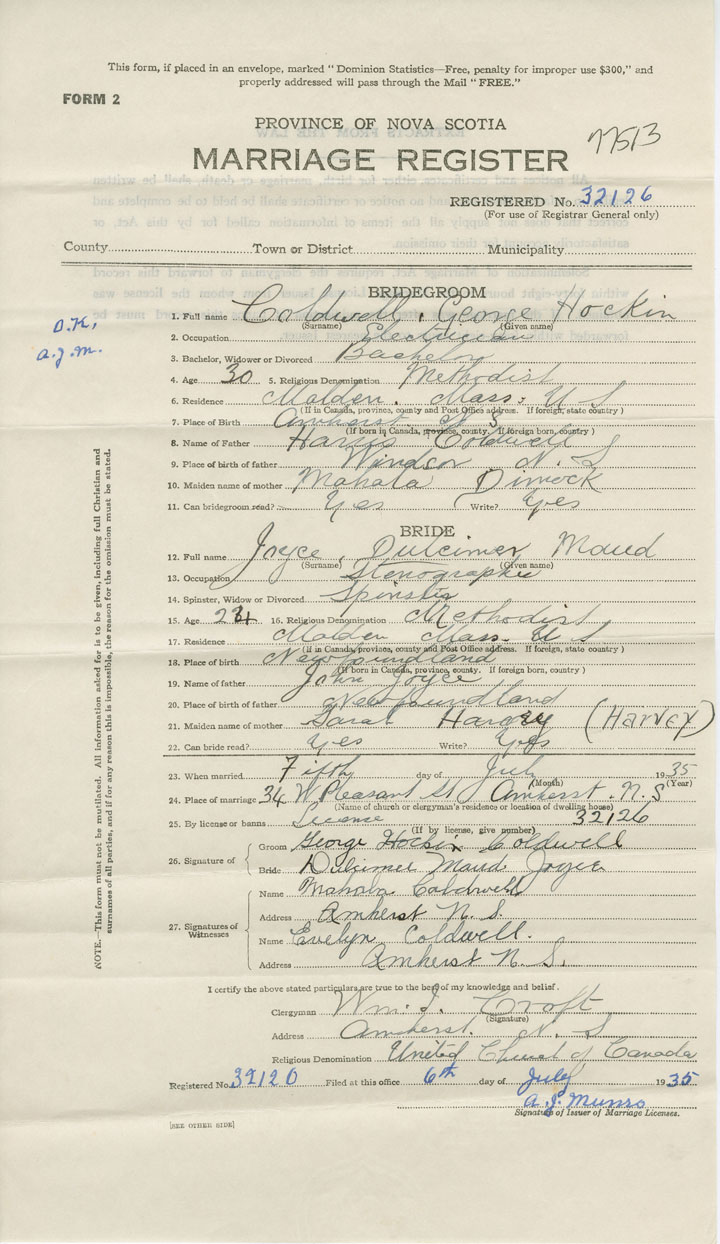 This form, if placed in an envelope, marked "Dominion Statistics—Free, penalty for improper use $300," and
properly addressed will pass through the Mail "FREE."
FORM 2
PROVINCE OF NOVA SCOTIA
77513
MARRIAGE REGISTER
REGISTERED No. 32126
(For use of Registrar General only)
County Town or District Municipality
BRIDEGROOM
O.K.,
a.j.m.
1. Full name Coldwell, George Hockin
(Surname) (Given name)
2. Occupation Electrician
3. Bachelor, Widower or Divorced Bachelor
4. Age 30 5. Religious Denomination Methodist
6. Residence Malden. Mass. U S
(If in Canada, province, county and Post Office address. If foreign, state country)
7. Place of Birth Amherst. N S
(If born in Canada, province, county. If foreign born, country)
8. Name of Father Harris Coldwell
9. Place of birth of father Windsor N. S
10. Maiden name of mother Mahala Dimock
11. Can bridegroom read? Yes Write? Yes
BRIDE
12. Full name Joyce, Dulcimer Maud
(Surname) (Given name)
13. Occupation Stenographer
14. Spinster, Widow or Divorced Spinster
15. Age 16. Religious Denomination Methodist
17. Residence Malden Mass. U S
(If in Canada, province, county and Post Office address. If foreign, state country)
18. Place of birth Newfoundland
(If born in Canada, province, county. If foreign born, country)
19. Name of father John Joyce
20. Place of birth of father Newfoundland
21. Maiden name of mother Sarah Harvey (Harvey)
22. Can bride read? Yes Write? Yes
23. When married Fifth day of July 1935
(Month) (Year)
24. Place of marriage 34 W Pleasant St Amherst. N. S
(Name of church or clergyman's residence or location of dwelling house)
25. By license or banns License 32126
(If by license, give number)
26. Signature of Groom George Hockin Coldwell
Bride Dulcimer Maud Joyce
27. Signatures of Witnesses Name Mahala Coldwell
Address Amherst N. S.
Name Evelyn Coldwell.
Address Amherst N. S.
I certify the above stated particulars are true to the best of my knowledge and belief.
Clergyman Wm. J. Croft
(Signature)
Address Amherst. N. S
Religious Denomination United Church of Canada
Registered No. 32126 Filed at this office 6th day of July 1935
A. J. Munro
Signature of Issuer of Marriage Licenses.
[SEE OTHER SIDE]
NOTE.—This form must not be mutilated. All information asked for is to be given, including full Christian and
surnames of all parties, and if for any reason this is impossible, the reason for the omission must be stated.